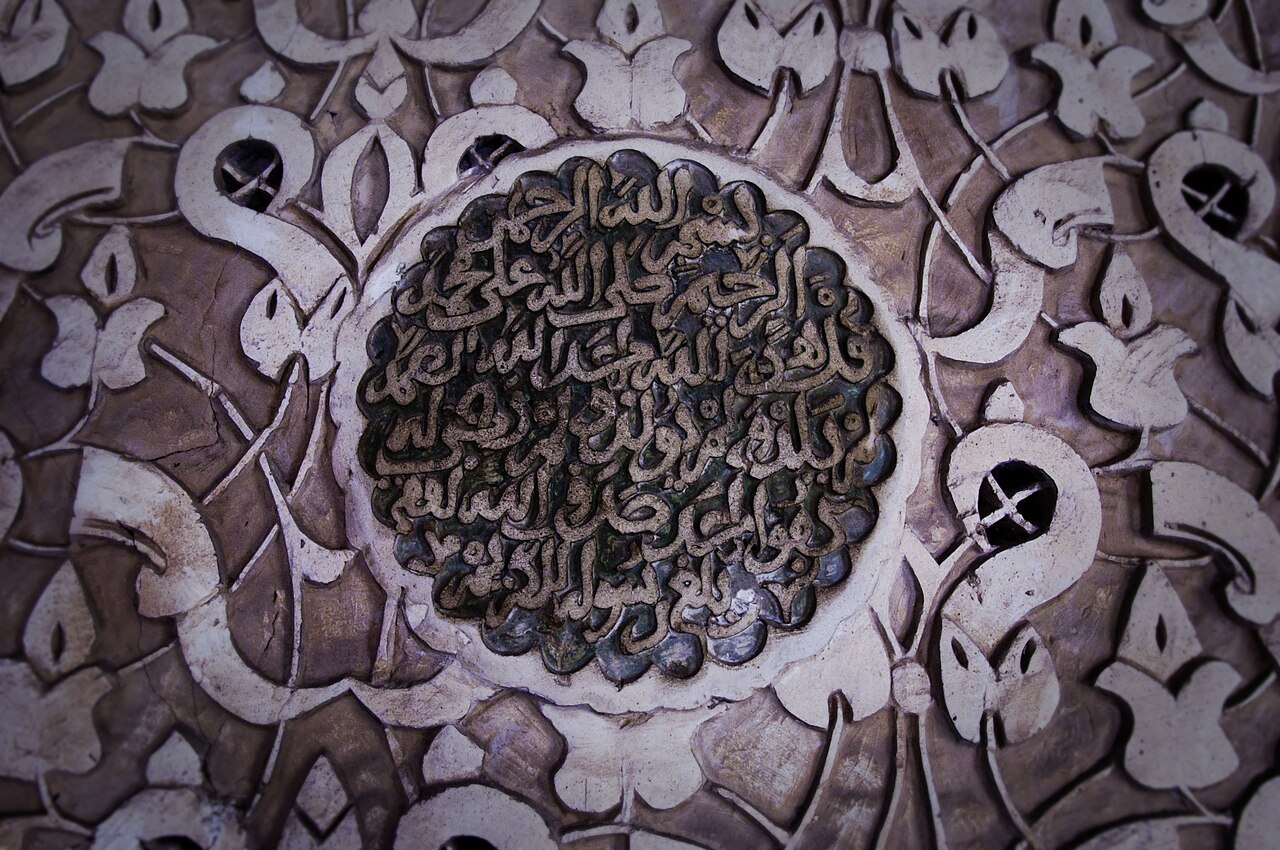 بسم الله الرحمن
الرحيم صلى الله على محمد
قل هو الله احد الله الصمد
لم يلد ولم يولد ولم يكن له
كفوا احد صدق الله العظيم
وبلغ رسوله الكريم